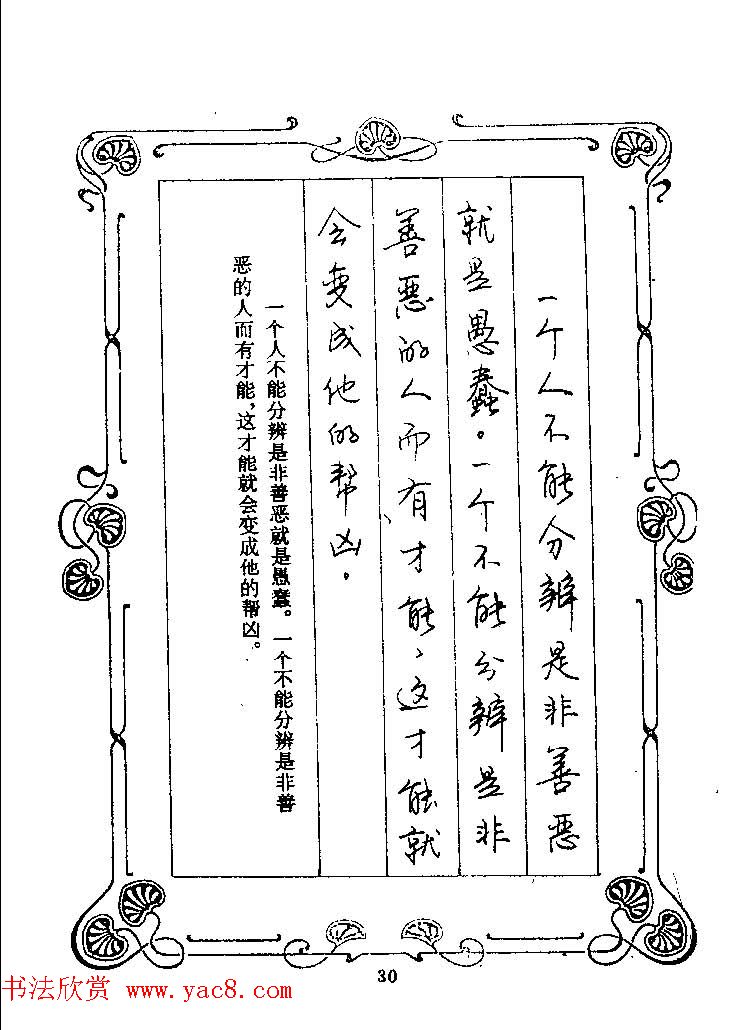 一个人不能分辨是非善恶
就是愚蠢。一个不能分辨是非
善恶的人而有才能、这才能就
会变成他的帮凶。
一个人不能分辨是非善恶就是愚蠢。一个不能分辨是非善
恶的人而有才能，这才能就会变成他的帮凶。
30
书法欣赏 www.yac8.com